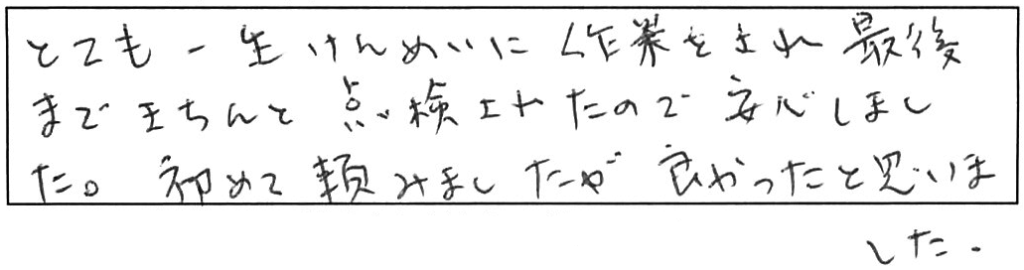 とても一生けんめいに作業をされ最後
まできちんと点検されたので安心しまし
た。初めて頼みましたが良かったと思いま
した.